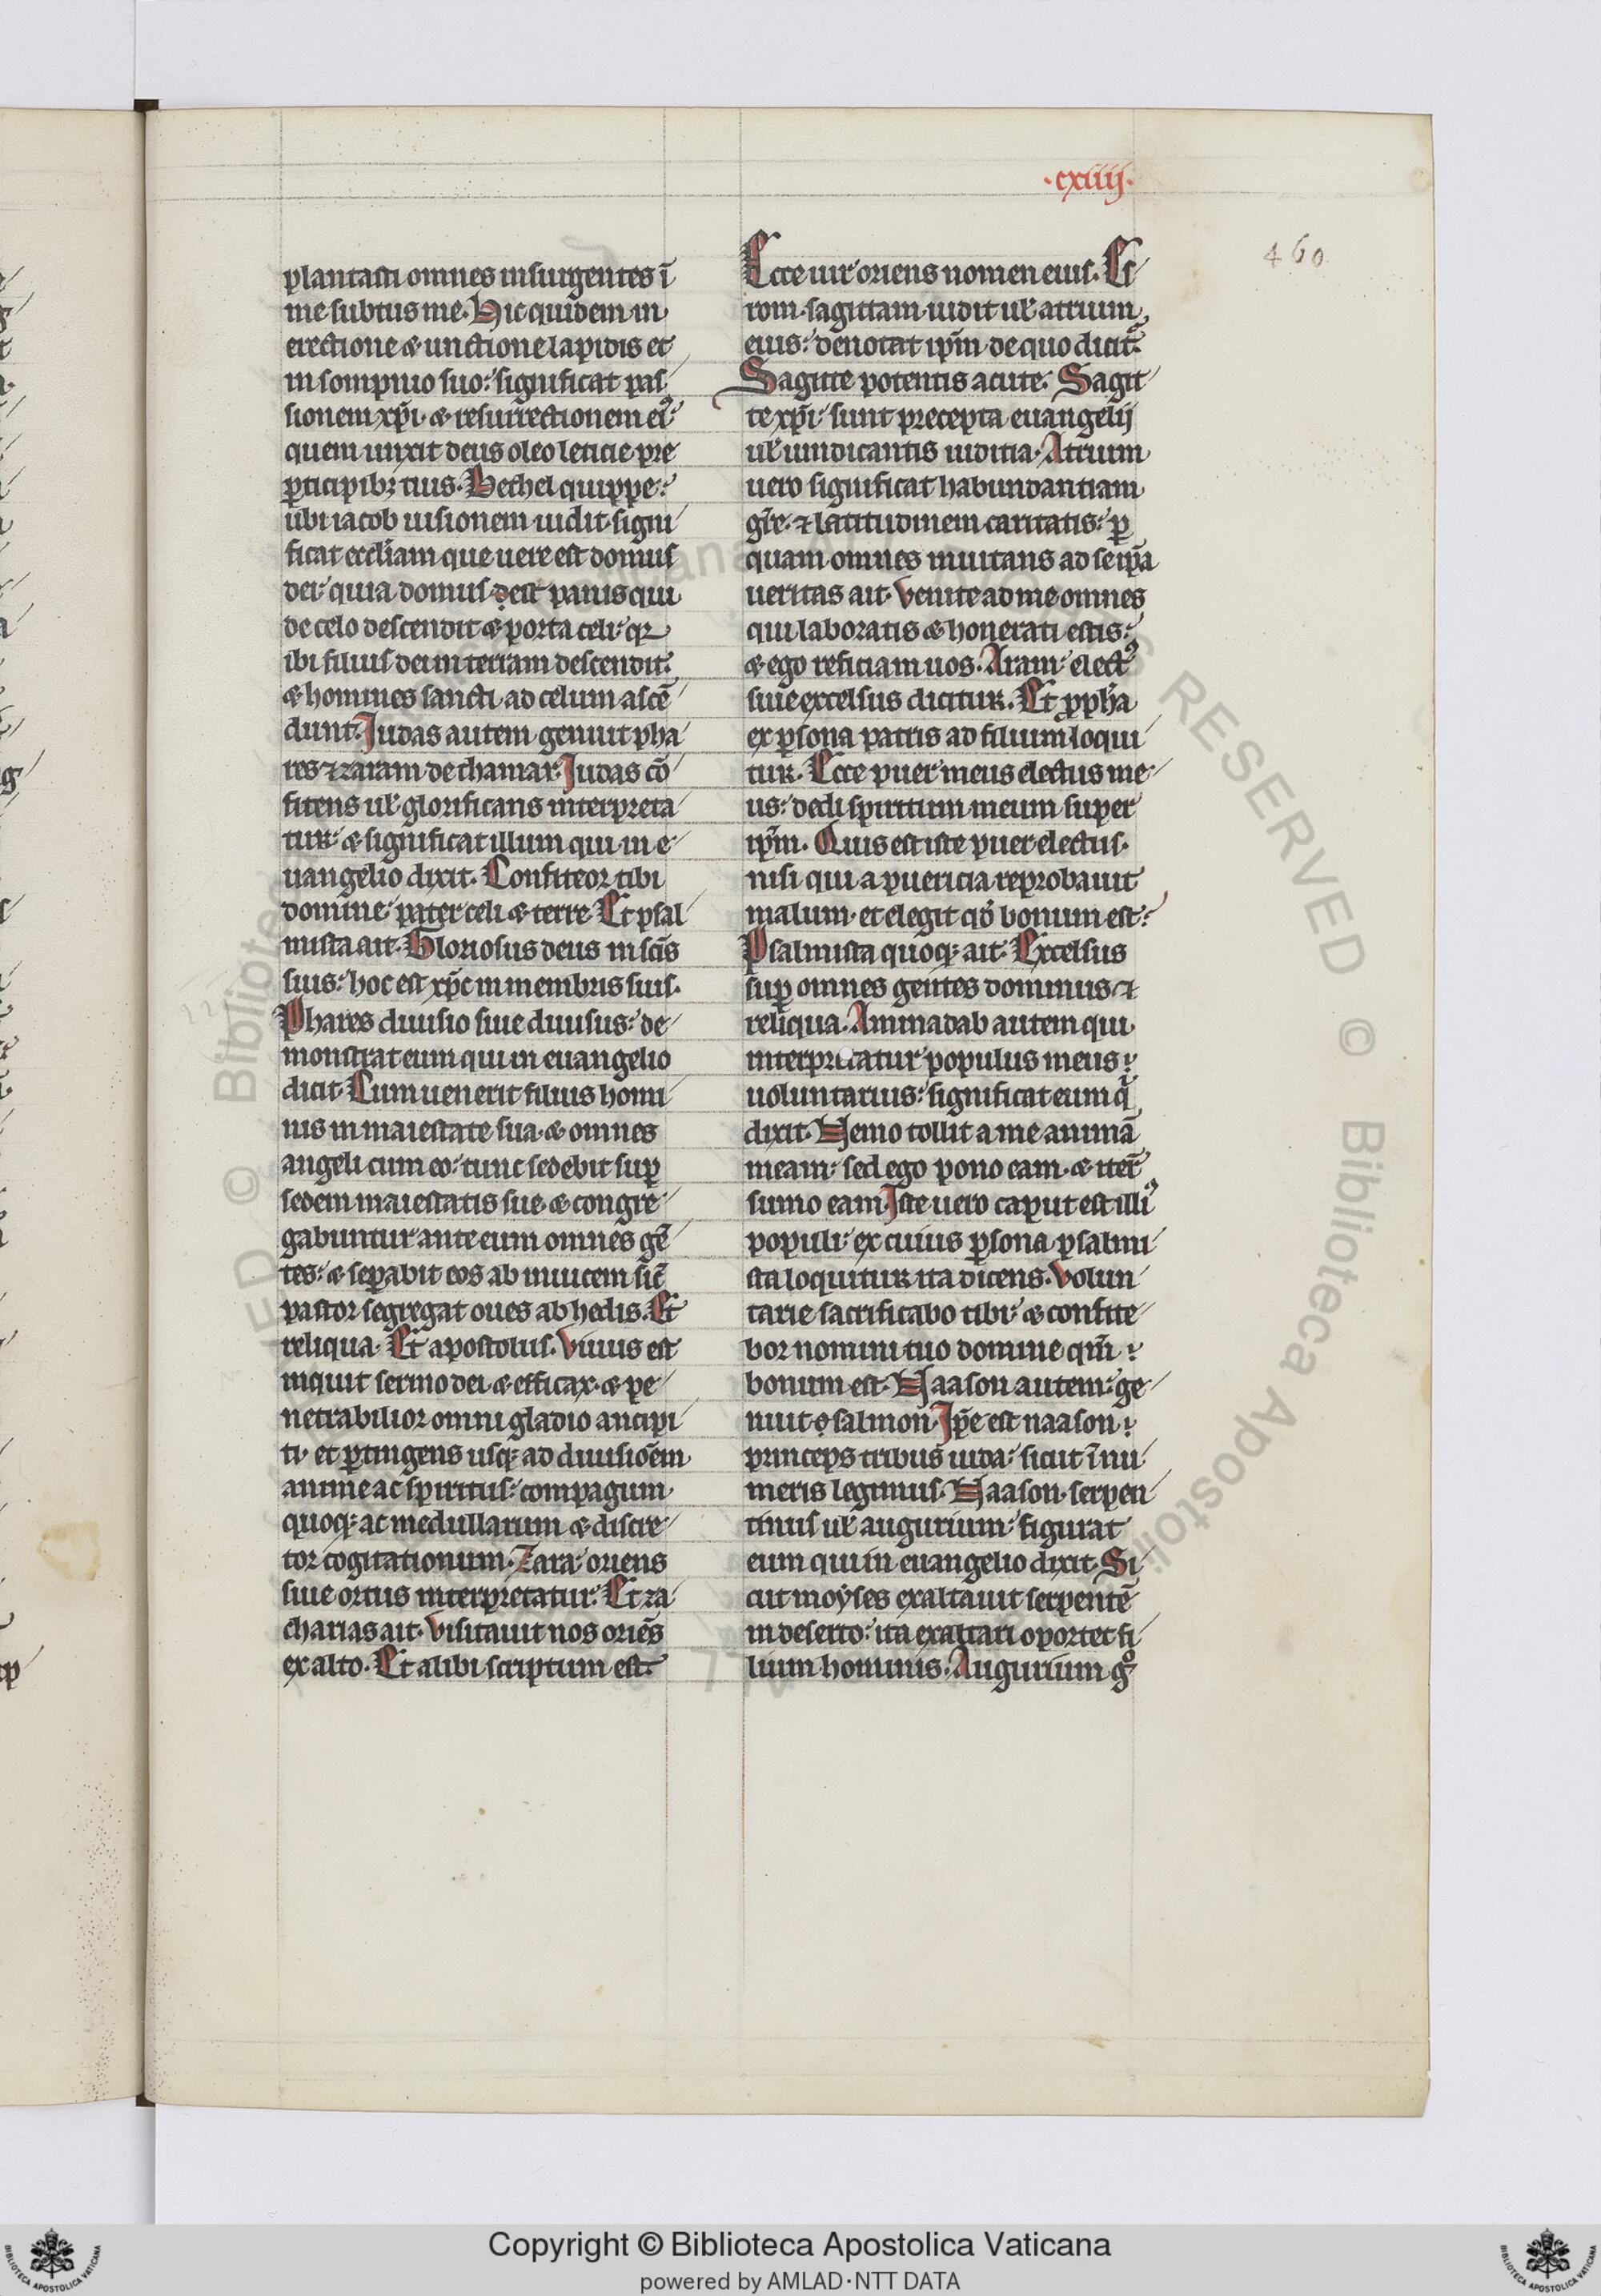 ·cxliiij·
460
plantasti omnes insurgentes ī
me subtus me. Hic quidem in
erectione & unctione lapidis et
in sompnio suo: significat pas
sionem xp̄i· & resurrectionem eiꝰ:
quem unxit deus oleo leticie pre
ꝑticipibꝫ tuis. Bethel quippe:
ubi iacob uisionem uidit· signi
ficat eccl̄iam que uere est domus
dei· quia domus· dest panis qui
de celo descendit & porta celi· qꝛ
ibi filius dei in terram descendit:
& homines sancti ad celum ascē
dunt. Judas autem genuit pha
res ⁊ zaram de thamar. Judas cō
fitens ul̄ glorificans interpreta
tur· & significat illum qui in e
uangelio dixit. Confiteor tibi
domine pater celi & terre. Et psal
mista ait. Gloriosus deus in sc̄is
suis: hoc est xp̄c in membris suis.
Phares diuisio siue diuisus: de
monstrat eum qui in euangelio
dicit. Cum uenerit filius homi
nis in maiestate sua· & omnes
angeli cum eo: tunc sedebit suꝑ
sedem maiestatis sue· & congre
gabuntur ante eum omnes gē
tes: & seꝑabit eos ab inuicem sic̄
pastor segregat oues ab hedis. Et
reliqua. Et apostolus. Viuus est
inquit sermo dei & efficax· & pe
netrabilior omni gladio ancipi
ti· et ꝑtingens usqꝫ ad diuisiōem
anime ac spiritus: compagum
quoqꝫ ac medullarum & discre
tor cogitationum. Zara· oriens
siue ortus interpretatur. Et za
charias ait. Visitauit nos oriēs
ex alto. Et alibi scriptum est.
Ecce uir oriens nomen eius. Es
rom· sagittam uidit ul̄ atrium
eius: denotat ip̄m de quo dicit̄.
Sagitte potentis acute. Sagit
te xp̄i· sunt precepta euangelij
ul̄ uindicantis uiditia. Atrium
uero significat habundantiam
gr̄e· ⁊ latitudinem caritatis: ꝑ
quam omnes inuitans ad se ip̄a
ueritas ait. Venite ad me omnes
qui laboratis & honerati estis:
& ego reficiam uos. Aram: electꝰ
siue excelsus dicitur. Et ꝓph̄a
ex ꝑsona patris ad filium loqui
tur. Ecce puer meus electus me
us: dedi spiritum meum super
ip̄m. Quis est iste puer electus·
nisi qui a puericia reprobauit
malum· et elegit qͥd bonum est:
Psalmista quoqꝫ ait. Excelsus
suꝑ omnes gentes dominus ⁊
reliqua. Aminadab autem qui
interpretatur populus meus:
uoluntarius: significat eum qͥ
dixit. Nemo tollit a me animā
meam: sed ego pono eam· & iter̄
sumo eam. Iste uero caput est illiꝰ
populi· ex cuius ꝑsona psalmi
sta loquitur ita dicens. Volun
tarie sacrificabo tibi: & confite
bor nomini tuo domine qm̄:
bonum est. Naason autem: ge
nuit salmon. Ip̄e est naason:
princeps tribus iuda: sicut ī nu
meris legimus. Naason· serpen
tinus ul̄ augurium: figurat
eum qui in euangelio dixit. Si
cut moyses exaltauit serpentē
in deserto: ita exaltari oportet fi
lium hominis. Augurium gͦ
Copyright © Biblioteca Apostolica Vaticana
powered by AMLAD·NTT DATA